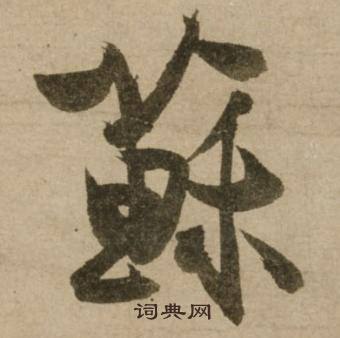 蘇
词典网